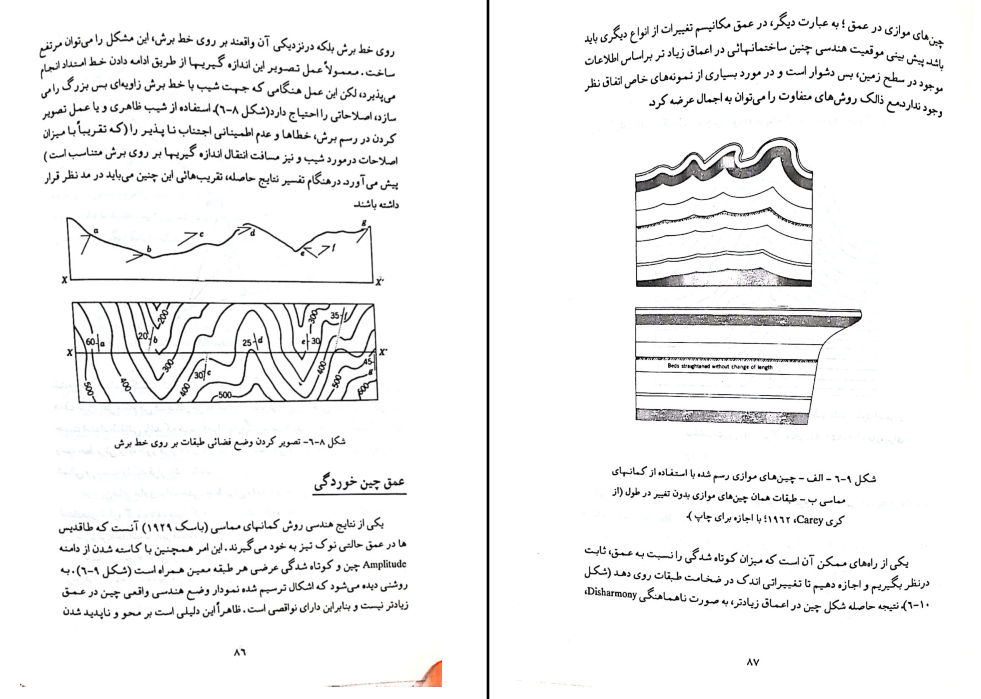 روی خط برش بلکه درنزدیکی آن واقعند بر روی خط برش، این مشکل را می‌توان مرتفع
ساخت. معمولاً عمل تصویر این اندازه گیریها از طریق ادامه دادن خط امتداد انجام
می‌پذیرد، لکن این عمل هنگامی که جهت شیب با خط برش زاویه‌ای بس بزرگ را می
سازد، اصلاحاتی را احتیاج دارد(شکل ۸-۶). استفاده از شیب ظاهری و یا عمل تصویر
کردن در رسم برش، خطاها و عدم اطمینانی اجتناب نا پذیر را (که تقریباً با میزان
اصلاحات درمورد شیب و نیز مسافت انتقال اندازه گیریها بر روی برش متناسب است )
پیش می آورد. درهنگام تفسیر نتایج حاصله، تقریب‌هائی این چنین می‌باید در مد نظر قرار
داشته باشند.
a b c d e f g
X X'
200 300 35 f
60 a 20 b 25 d e 30
X X'
300 30 c 400 45 g
500 400 400 500 500 600
شکل ۸-۶- تصویر کردن وضع فضائی طبقات بر روی خط برش
عمق چین خوردگی
یکی از نتایج هندسی روش کمانهای مماسی (باسک ۱۹۲۹) آنست که طاقدیس
ها در عمق حالتی نوک تیز به خود می‌گیرند . این امر همچنین با کاسته شدن از دامنه
Amplitude چین و کوتاه شدگی عرضی هر طبقه معین همراه است (شکل ۹-۶). به
روشنی دیده می‌شود که اشکال ترسیم شده نمودار وضع هندسی واقعی چین در عمق
زیادتر نیست و بنابراین دارای نواقصی است . ظاهراً این دلیلی است بر محو و ناپدید شدن
۸۶
چین های موازی در عمق ؛ به عبارت دیگر، در عمق مکانیسم تغییرات از انواع دیگری باید
باشد. پیش بینی موقعیت هندسی چنین ساختمانهائی در اعماق زیاد تر براساس اطلاعات
موجود در سطح زمین، بس دشوار است و در مورد بسیاری از نمونه‌های خاص اتفاق نظر
وجود ندارد.مع ذالک روش‌های متفاوت را می‌توان به اجمال عرضه کرد.
Beds straightened without change of length
شکل ۹-۶ - الف - چین‌های موازی رسم شده با استفاده از کمانهای
مماسی ب - طبقات همان چین‌های موازی بدون تغییر در طول (از
کری Carey، ۱۹۶۲؛ با اجازه برای چاپ ).
یکی از راه‌های ممکن آن است که میزان کوتاه شدگی را نسبت به عمق، ثابت
درنظر بگیریم و اجازه دهیم تا تغییراتی اندک در ضخامت طبقات روی دهد (شکل
۱۰-۶). نتیجه حاصله شکل چین در اعماق زیادتر، به صورت ناهماهنگی Disharmony،
۸۷